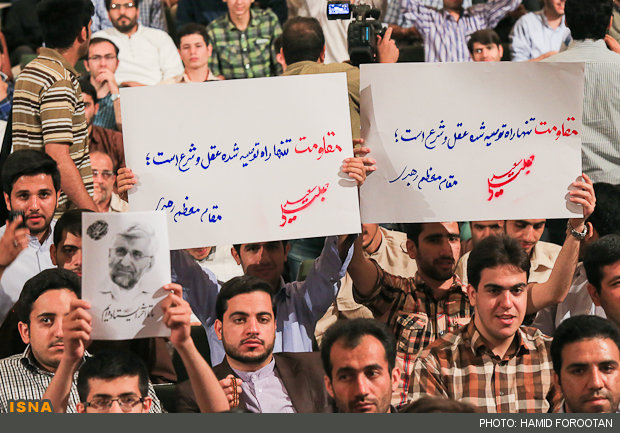 مقاومت تنها راه توصیه شده عقل و شرع است؛
مقام معظم رهبری
سعید جلیلی
مقاومت تنها راه توصیه شده عقل و شرع است؛
مقام معظم رهبری
سعید جلیلی
تا آخر ایستاده ایم
ISNA
PHOTO: HAMID FOROOTAN